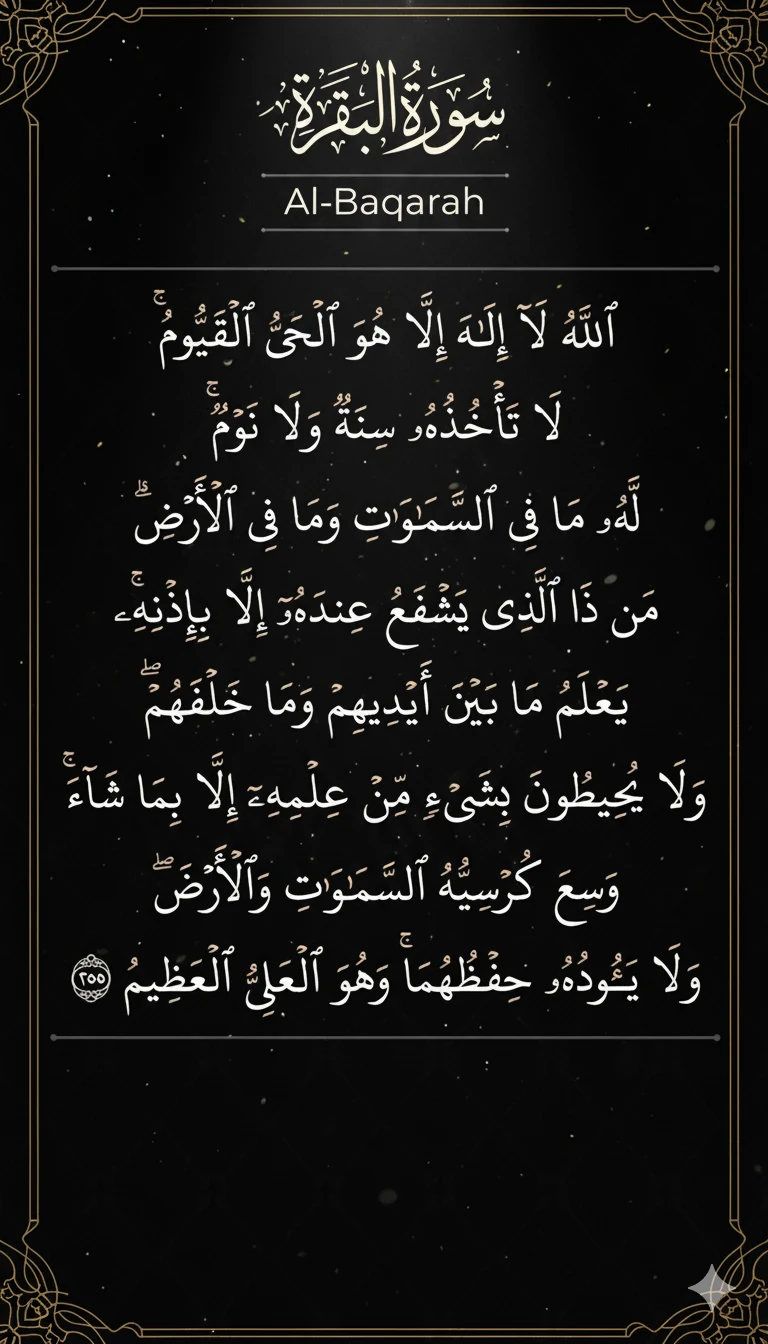 سُورَةُ البَقَرَةِ
Al-Baqarah
ٱللَّهُ لَآ إِلَـٰهَ إِلَّا هُوَ ٱلْحَىُّ ٱلْقَيُّومُ ۚ
لَا تَأْخُذُهُۥ سِنَةٌ وَلَا نَوْمٌ ۚ
لَّهُۥ مَا فِى ٱلسَّمَـٰوَٰتِ وَمَا فِى ٱلْأَرْضِ ۗ
مَن ذَا ٱلَّذِى يَشْفَعُ عِندَهُۥٓ إِلَّا بِإِذْنِهِۦ ۚ
يَعْلَمُ مَا بَيْنَ أَيْدِيهِمْ وَمَا خَلْفَهُمْ ۖ
وَلَا يُحِيطُونَ بِشَىْءٍ مِّنْ عِلْمِهِۦٓ إِلَّا بِمَا شَآءَ ۚ
وَسِعَ كُرْسِيُّهُ ٱلسَّمَـٰوَٰتِ وَٱلْأَرْضَ ۖ
وَلَا يَـُٔودُهُۥ حِفْظُهُمَا ۚ وَهُوَ ٱلْعَلِىُّ ٱلْعَظِيمُ ٢٥٥